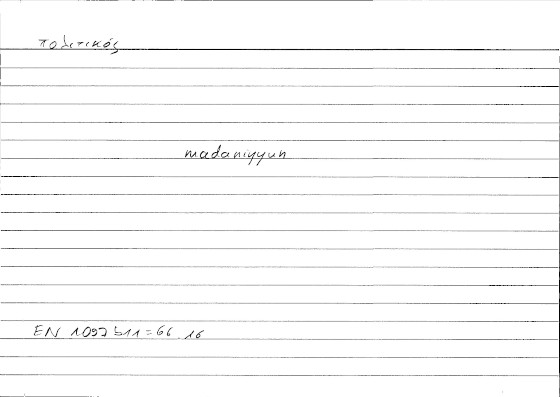 πολιτικός
madaniyyun
EN 1097 b11 = 66.16